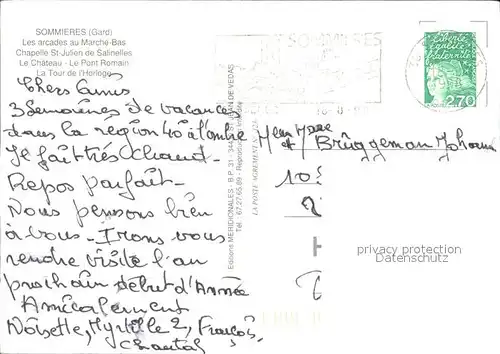 SOMMIERES (Gard)
Les arcades au Marché-Bas
Chapelle St-Julien de Salinelles
Le Château - Le Pont Romain
La Tour de l'Horloge
Chers Amis
3 Semaines de vacances
dans la région 40 à l'ombre
il fait très chaud -
Repos parfait -
Nous pensons bien
à vous - Irons vous
rendre visite l'an
prochain début d'Année
Amicalement
Noisette, Myrtille 2, François,
Chantal
Editions MERIDIONALES - B.P. 31 - ST JEAN DE VEDAS
Tél. 67.27.65.89 - Reproduction interdite
LA POSTE AGREMENT N°
SOMMIERES
Liberté
égalité
fraternité
2,70
LA POSTE
et Brüggeman
10
privacy protection
Datenschutz